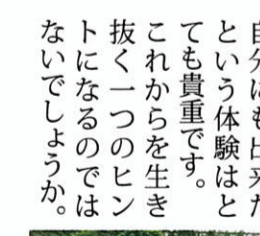 自分にも出来た
という体験はと
ても貴重です。
これからを生き
抜く一つのヒン
トになるのでは
ないでしょうか。